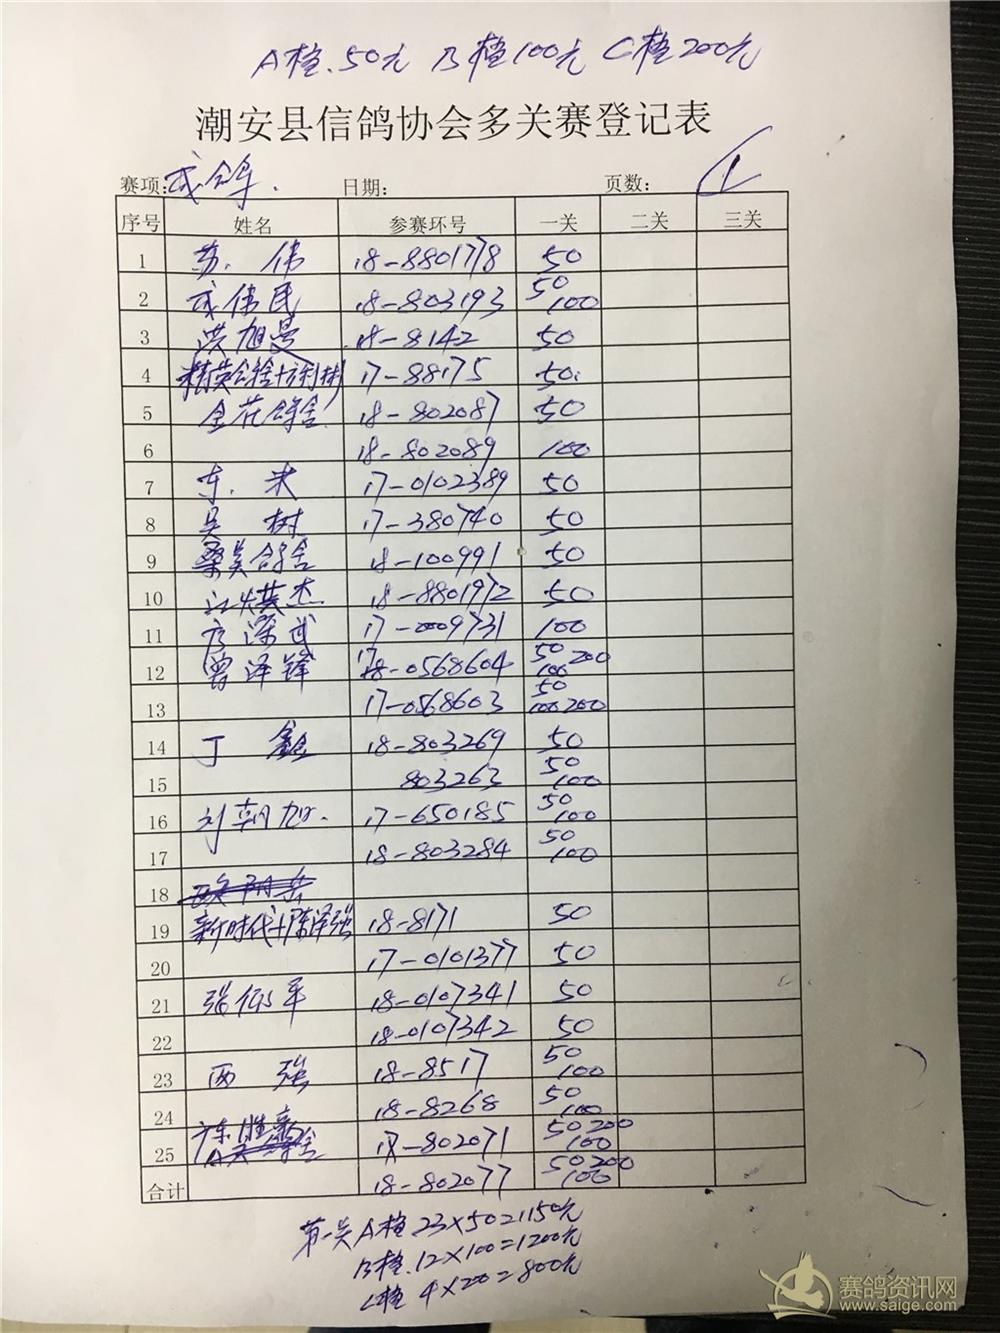 A档.50元 B档100元 C档200元
潮安县信鸽协会多关赛登记表
赛项: 成鸽. 日期: 页数: 1
序号 姓名 参赛环号 一关 二关 三关
1 苏.伟 18-8801778 50
2 成伟民 18-803193 50 100
3 洪旭曼 18-8142 50
4 精英鸽舍+方利彬 17-88175 50
5 金花鸽舍 18-802087 50
6 18-802089 100
7 东.米 17-0102389 50
8 吴树 17-380740 50
9 桑吴鸽舍 18-100991 50
10 江烘杰 18-8801972 50
11 方深武 17-0009731 100
12 曾泽锋 17-0568604 50 200 100
13 17-0568603 50 100 200
14 丁鑫 18-803269 50
15 803263 50 100
16 刘朝旭. 17-650185 50 100
17 18-803284 50 100
18
19 新时代+陈泽强 18-8171 50
20 17-0101377 50
21 张仰平 18-0107341 50
22 18-0107342 50
23 西强 18-8517 50 100
24 18-8268 50 100
25 18-802071 50 200 100
合计 18-802077 50 200 100
第一关A档 23×50=1150元
B档.12×100=1200元
C档 4×200=800元
赛鸽资讯网
www.saige.com